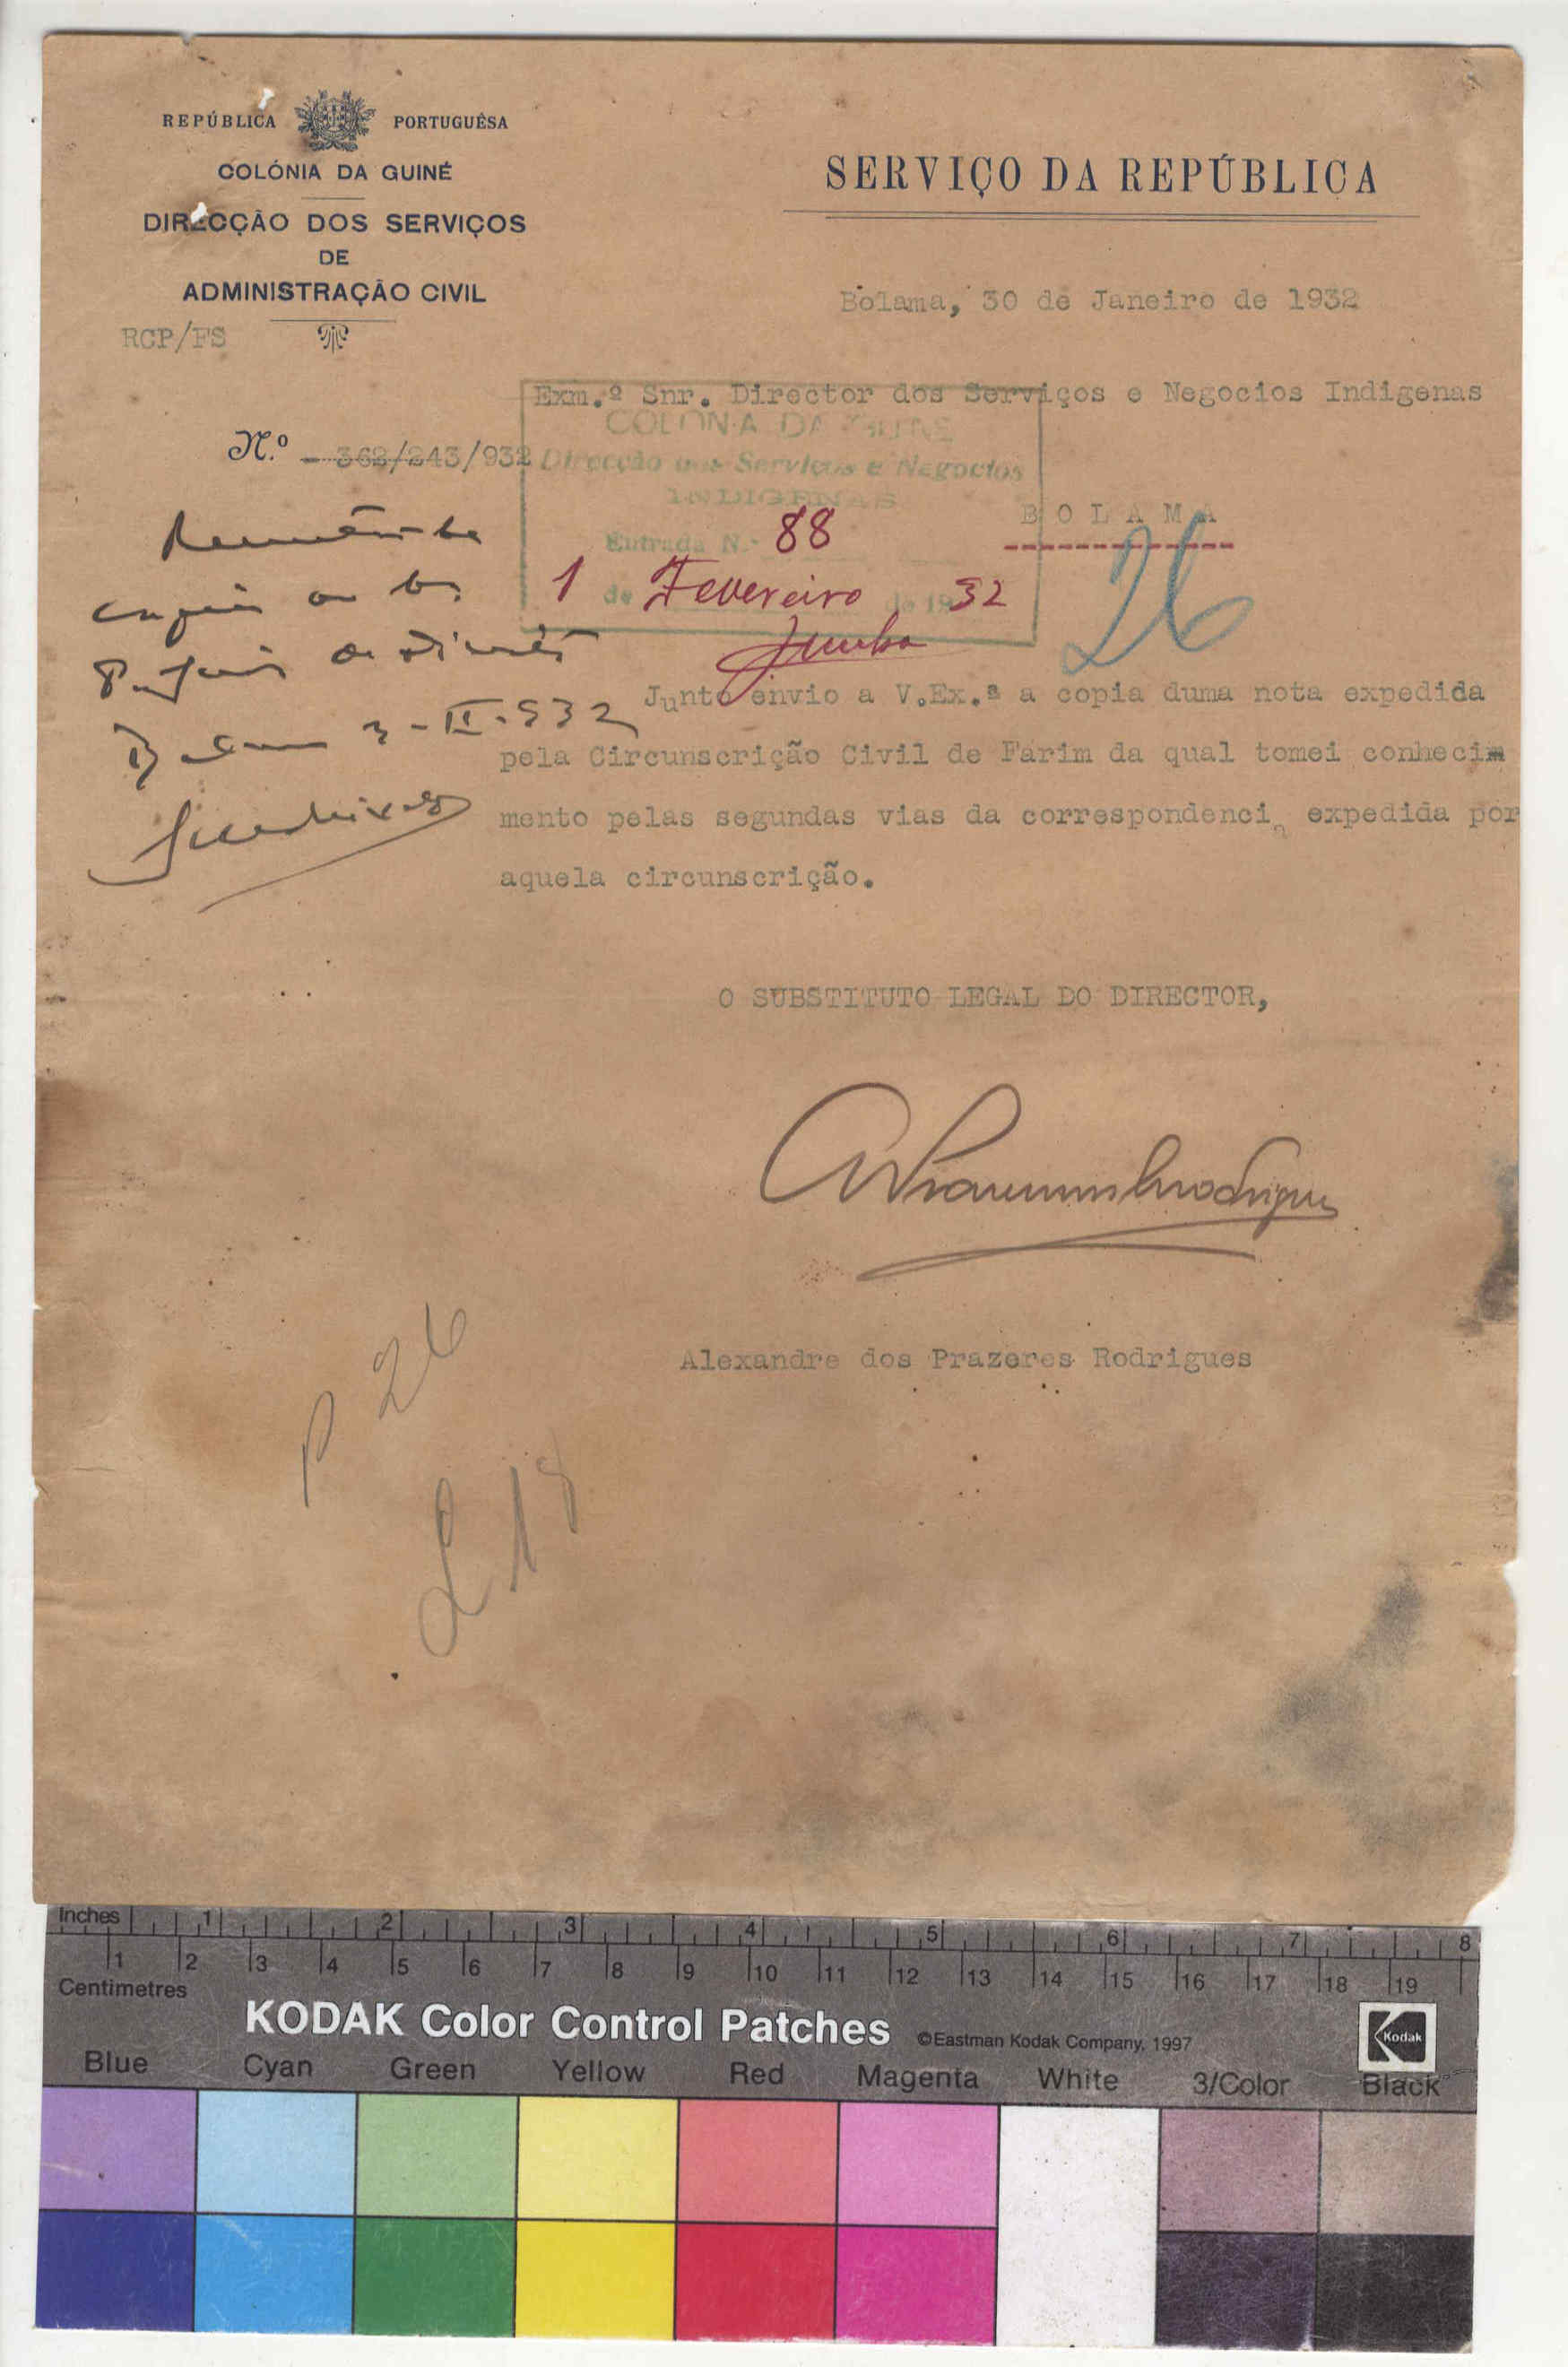 REPÚBLICA PORTUGUÊSA
COLÓNIA DA GUINÉ
DIRECÇÃO DOS SERVIÇOS
DE
ADMINISTRAÇÃO CIVIL
RCP/FS
SERVIÇO DA REPÚBLICA
Bolama, 30 de Janeiro de 1932
Exm.º Snr. Director dos Serviços e Negocios Indigenas
N.º - 362/243/932
COLONIA DA GUINÉ
Direcção dos Serviços e Negocios
INDIGENAS
Entrada N.º 88
1 de Fevereiro de 1932
BOLAMA
26
3-II-932
Junto envio a V.Ex.ª a copia duma nota expedida
pela Circunscrição Civil de Farim da qual tomei conhecim
mento pelas segundas vias da correspondencia expedida por
aquela circunscrição.
O SUBSTITUTO LEGAL DO DIRECTOR,
Alexandre dos Prazeres Rodrigues
P 26
L 18
Inches 1 2 3 4 5 6 7 8
1 2 3 4 5 6 7 8 9 10 11 12 13 14 15 16 17 18 19
Centimetres
KODAK Color Control Patches ©Eastman Kodak Company, 1997 Kodak
Blue Cyan Green Yellow Red Magenta White 3/Color Black